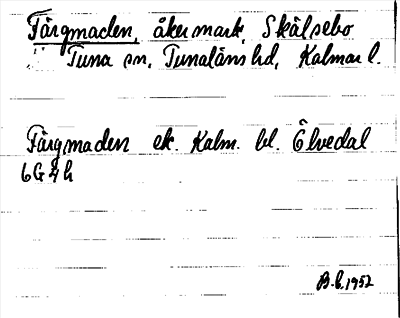 Färgmaden, åkermark, Skälsebo
Tuna sn, Tunaläns hd, Kalmar l.
Färgmaden ek. Kalm. bl. Ölvedal
6G4h
B.L. 1952